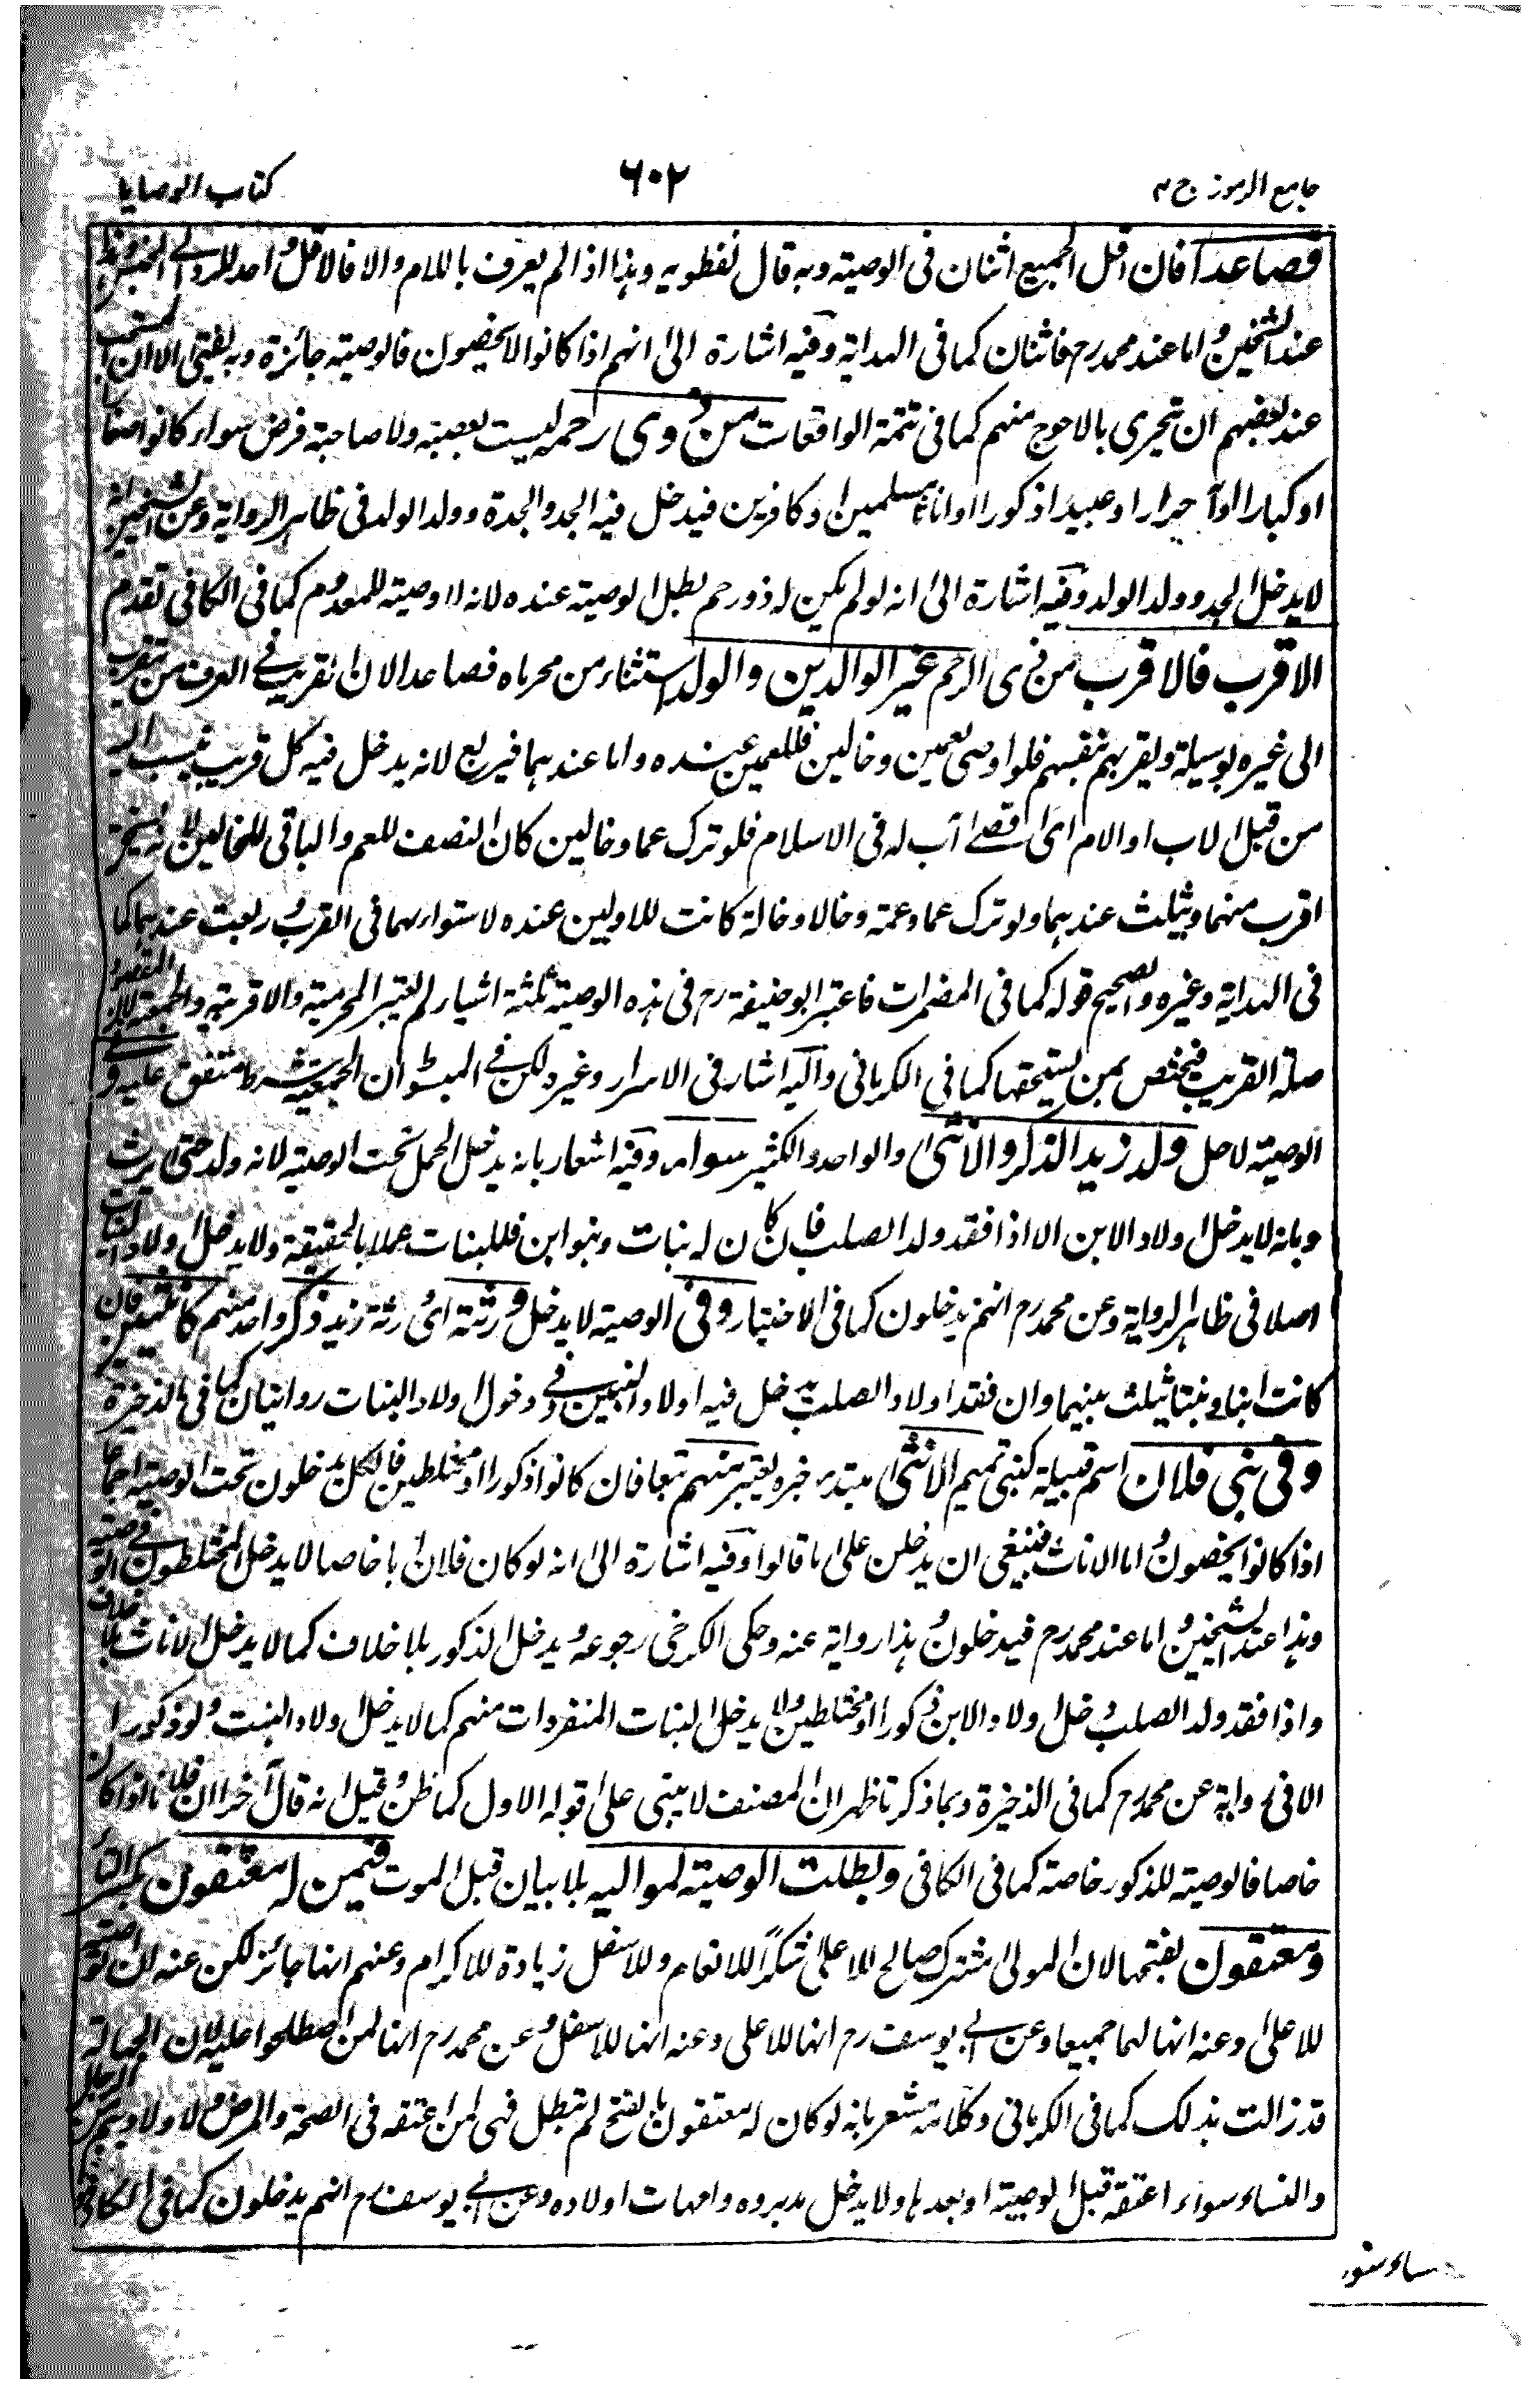 جامع الرموز ج ٢
٦٠٢
كتاب الوصايا
فصاعدا فان اقل الجميع اثنان فى الوصية وبه قال نفطويه وهذا اذا لم يعرف باللام والا فالاقل واحد
عند الشيخين واما عند محمد رح فاثنان كما فى الهداية وفيه اشارة الى انهم اذا كانوا لا يحصون فالوصية جائزة وبه يفتى الا ان
عند بعضهم ان تجرى بالاحوج منهم كما فى تتمة الواقعات من ذوى رحمه ليست بعصبة ولا صاحبة فرض سواء كانوا صغارا
او كبارا او احرارا او عبيدا ذكورا او اناثا مسلمين او كافرين فيدخل فيه الجد والجدة وولد الولد فى ظاهر الرواية وعن الشيخين انه
لا يدخل الجد وولد الولد وفيه اشارة الى انه لو لم يكن له ذو رحم بطل الوصية عنده لانه لا وصية للمعدوم كما فى الكافى تقدم
الاقرب فالاقرب من ذى الرحم غير الوالدين والولد استثناء من محرماه فصاعدا لان القريب فى العرف من يتقرب
الى غيره بوسيلة ويقربهم بنفسهم فلو اوصى لعمين وخالين فللعمين عنده واما عندهما فيربع لانه يدخل فيه كل قريب ينسب اليه
من قبل الاب او الام اى اقصى اب له فى الاسلام فلو ترك عما وخالين كان النصف للعم والباقى للخالين
اقرب منهما ويثلث عندهما ولو ترك عما وعمة وخالا وخالة كانت للاولين عنده لاستوائهما فى القرب وربعت عندهما كما
فى الهداية وغيره والصحيح قوله كما فى المضمرات فاعتبر ابو حنيفة رح فى هذه الوصية ثلثة اشياء لم يعتبر المحرمية والاقربية والجمعية لان المقصود
صلة القريب فيختص بمن يستحقها كما فى الكرمانى واليه اشار فى الاسرار وغيره لكن فى المبسوط ان الجمعية شرط متفق عليه و
الوصية لاجل ولد زيد الذكر والانثى والواحد والكثير سواء وفيه اشعار بانه يدخل الحمل تحت الوصية لانه ولد حتى يرث
وبانه لا يدخل اولاد الابن الا اذا فقد ولد الصلب فان كان له بنات وبنو ابن فللبنات عملا بالحقيقة ولا يدخل اولاد البنات
اصلا فى ظاهر الرواية وعن محمد رح انهم يدخلون كما فى الاختيار وفى الوصية لا يدخل ورثته اى ورثة زيد ذكر واحد منهم كانثيين فان
كانت ابنا وبنتا يثلث بينهما وان فقد اولاد الصلب يدخل فيه اولاد البنين وفى دخول اولاد البنات روايتان كما فى الذخيرة
وفى بنى فلان اسم قبيلة كبنى تميم الانثى مبتدء خبره يعتبر منهم تبعا فان كانوا ذكورا او مختلطين فالكل يدخلون تحت الوصية اجماعا
اذا كانوا يحصون واما الاناث فينبغى ان يدخلن على ما قالوا وفيه اشارة الى انه لو كان فلان ابا خاصا لا يدخل المختلطون فى الوصية
وهذا عند الشيخين واما عند محمد رح فيدخلون وهذا رواية عنه وحكى الكرخى رجوعه ويدخل الذكور بلا خلاف كما لا يدخل الاناث بلا خلاف
واذا فقد ولد الصلب دخل اولاد الابن ذكورا او مختلطين ولا يدخل البنات المنفردات منهم كما لا يدخل اولاد البنت ولو ذكورا
الا فى رواية عن محمد رح كما فى الذخيرة وبما ذكرنا ظهر ان المصنف لا يبتنى على قوله الاول كما ظن وقيل انه قال اخرا ان فلانا لو كان
خاصا فالوصية للذكور خاصة كما فى الكافى وبطلت الوصية لمواليه بلا بيان قبل الموت فيمن له معتقون بكسر التاء
ومعتقون بفتحها لان المولى مشترك صالح للاعلى شكرا للانعام وللاسفل زيادة للاكرام وعنهم انها جائز لكن عنه ان
للاعلى وعنه انها لهما جميعا وعن ابى يوسف رح انها للاعلى وعنه انها للاسفل وعن محمد رح انها لمن اصطلحوا عليه لان الجهالة
قد زالت بذلك كما فى الكرمانى وكلامه مشعر بانه لو كان له معتقون بالفتح لم تبطل فهى لمن اعتقه فى الصحة والمرض ولاولادهم من الرجال
والنساء سواء اعتقه قبل الوصية او بعدها ولا يدخل مدبروه وامهات اولاده وعن ابى يوسف رح انهم يدخلون كما فى الكافى